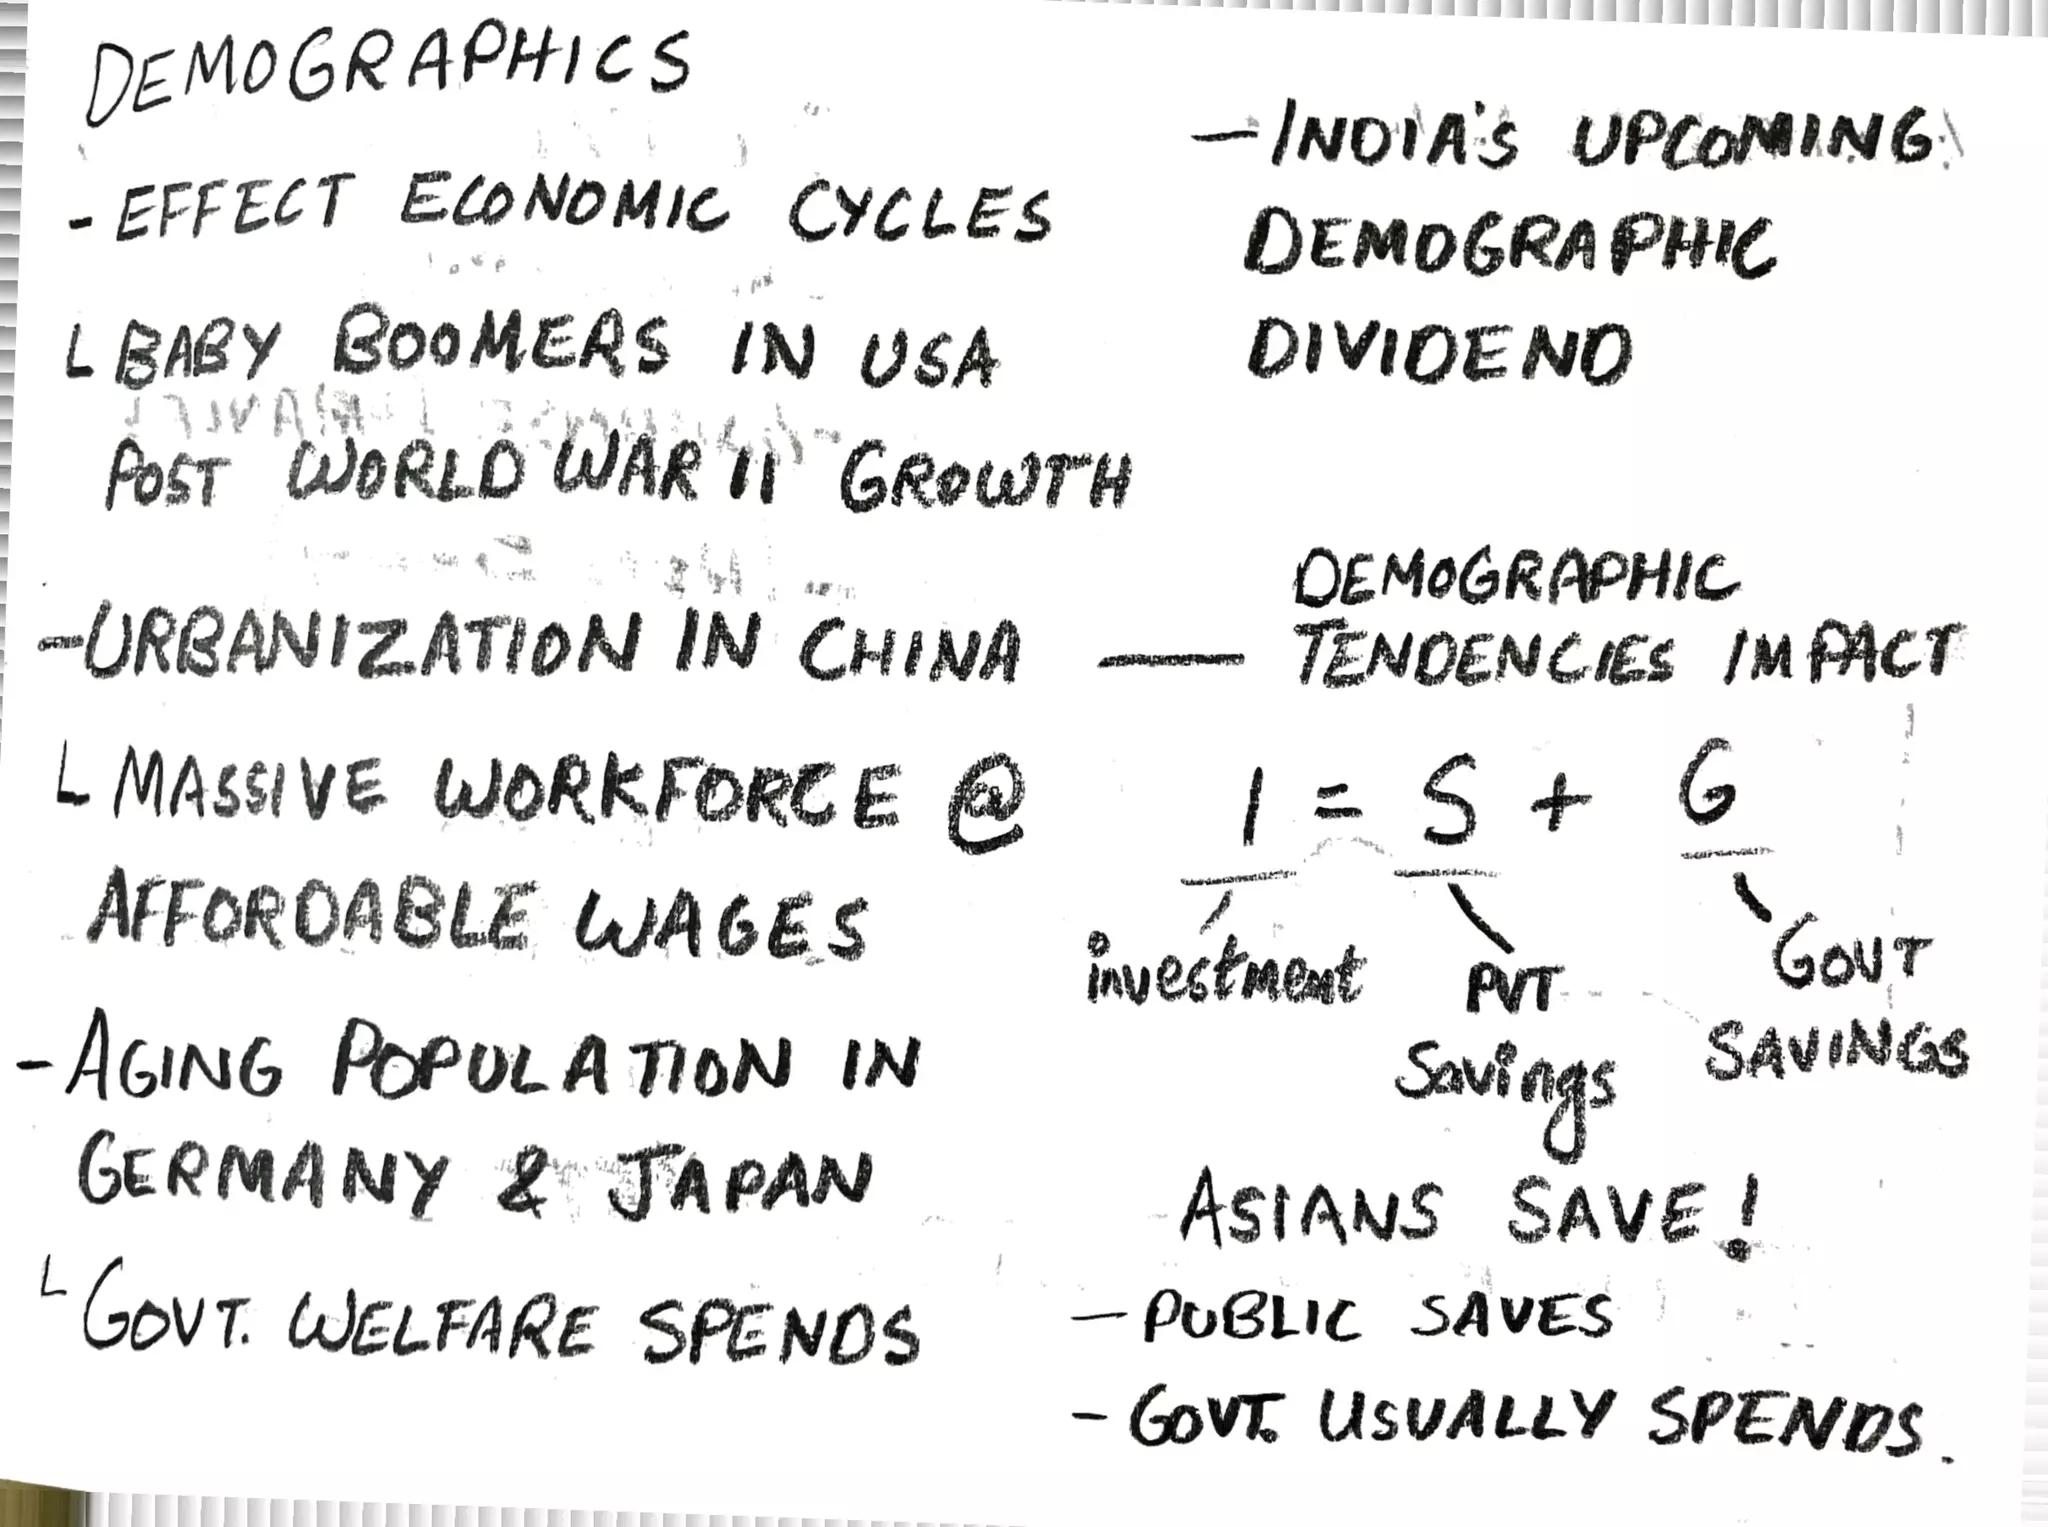 DEMOGRAPHICS
- EFFECT ECONOMIC CYCLES
└ BABY BOOMERS IN USA
POST WORLD WAR II GROWTH
- URBANIZATION IN CHINA
└ MASSIVE WORKFORCE @
AFFORDABLE WAGES
- AGING POPULATION IN
GERMANY & JAPAN
└ GOVT. WELFARE SPENDS
- INDIA'S UPCOMING
DEMOGRAPHIC
DIVIDEND
DEMOGRAPHIC
— TENDENCIES IMPACT
I = S + G
investment
PVT
Savings
GOVT
SAVINGS
ASIANS SAVE!
- PUBLIC SAVES
- GOVT. USUALLY SPENDS.